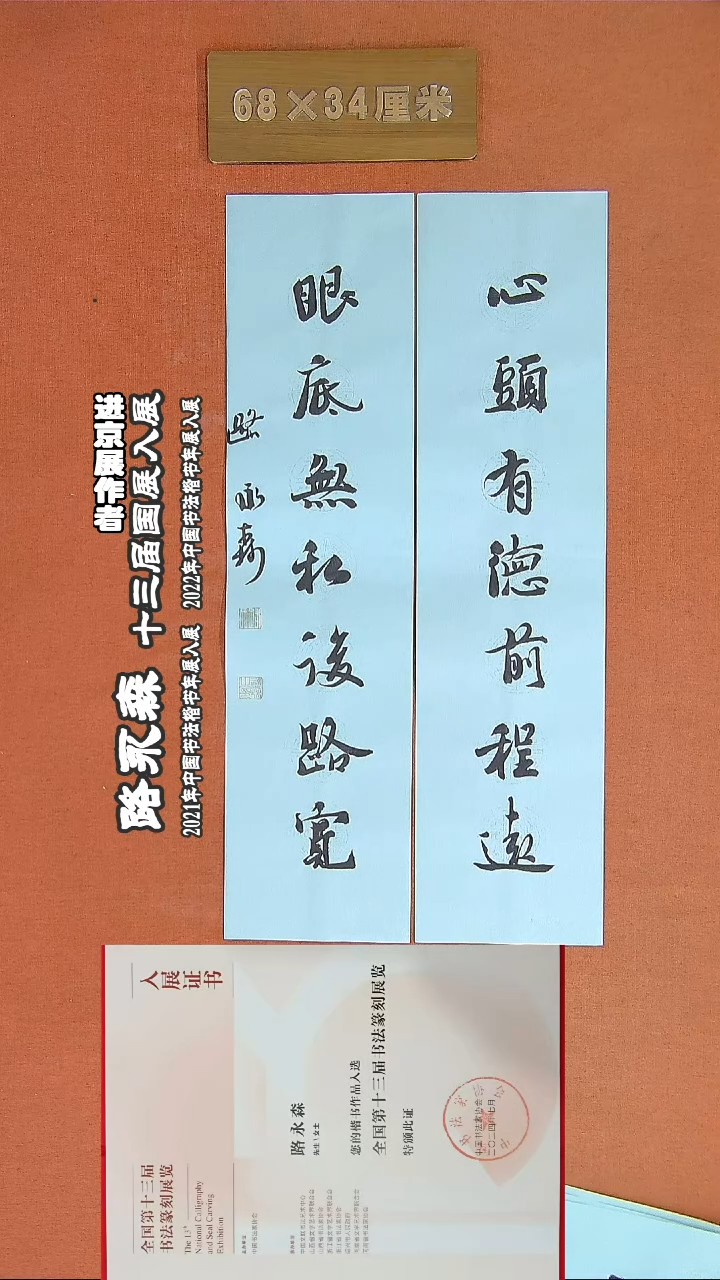 68×34厘米
心頭有德前程遠
眼底無私後路寬
路永森
路永森 十三届国展入展
2021年中国书法楷书年展入展 2022年中国书法楷书年展入展
全国第十三届
书法篆刻展览
The 13th
National Calligraphy
and Seal Carving
Exhibition
入展证书
路永森
先生\女士
您的楷书作品入选
全国第十三届书法篆刻展览
特颁此证
中国书法家协会
二〇二四年七月